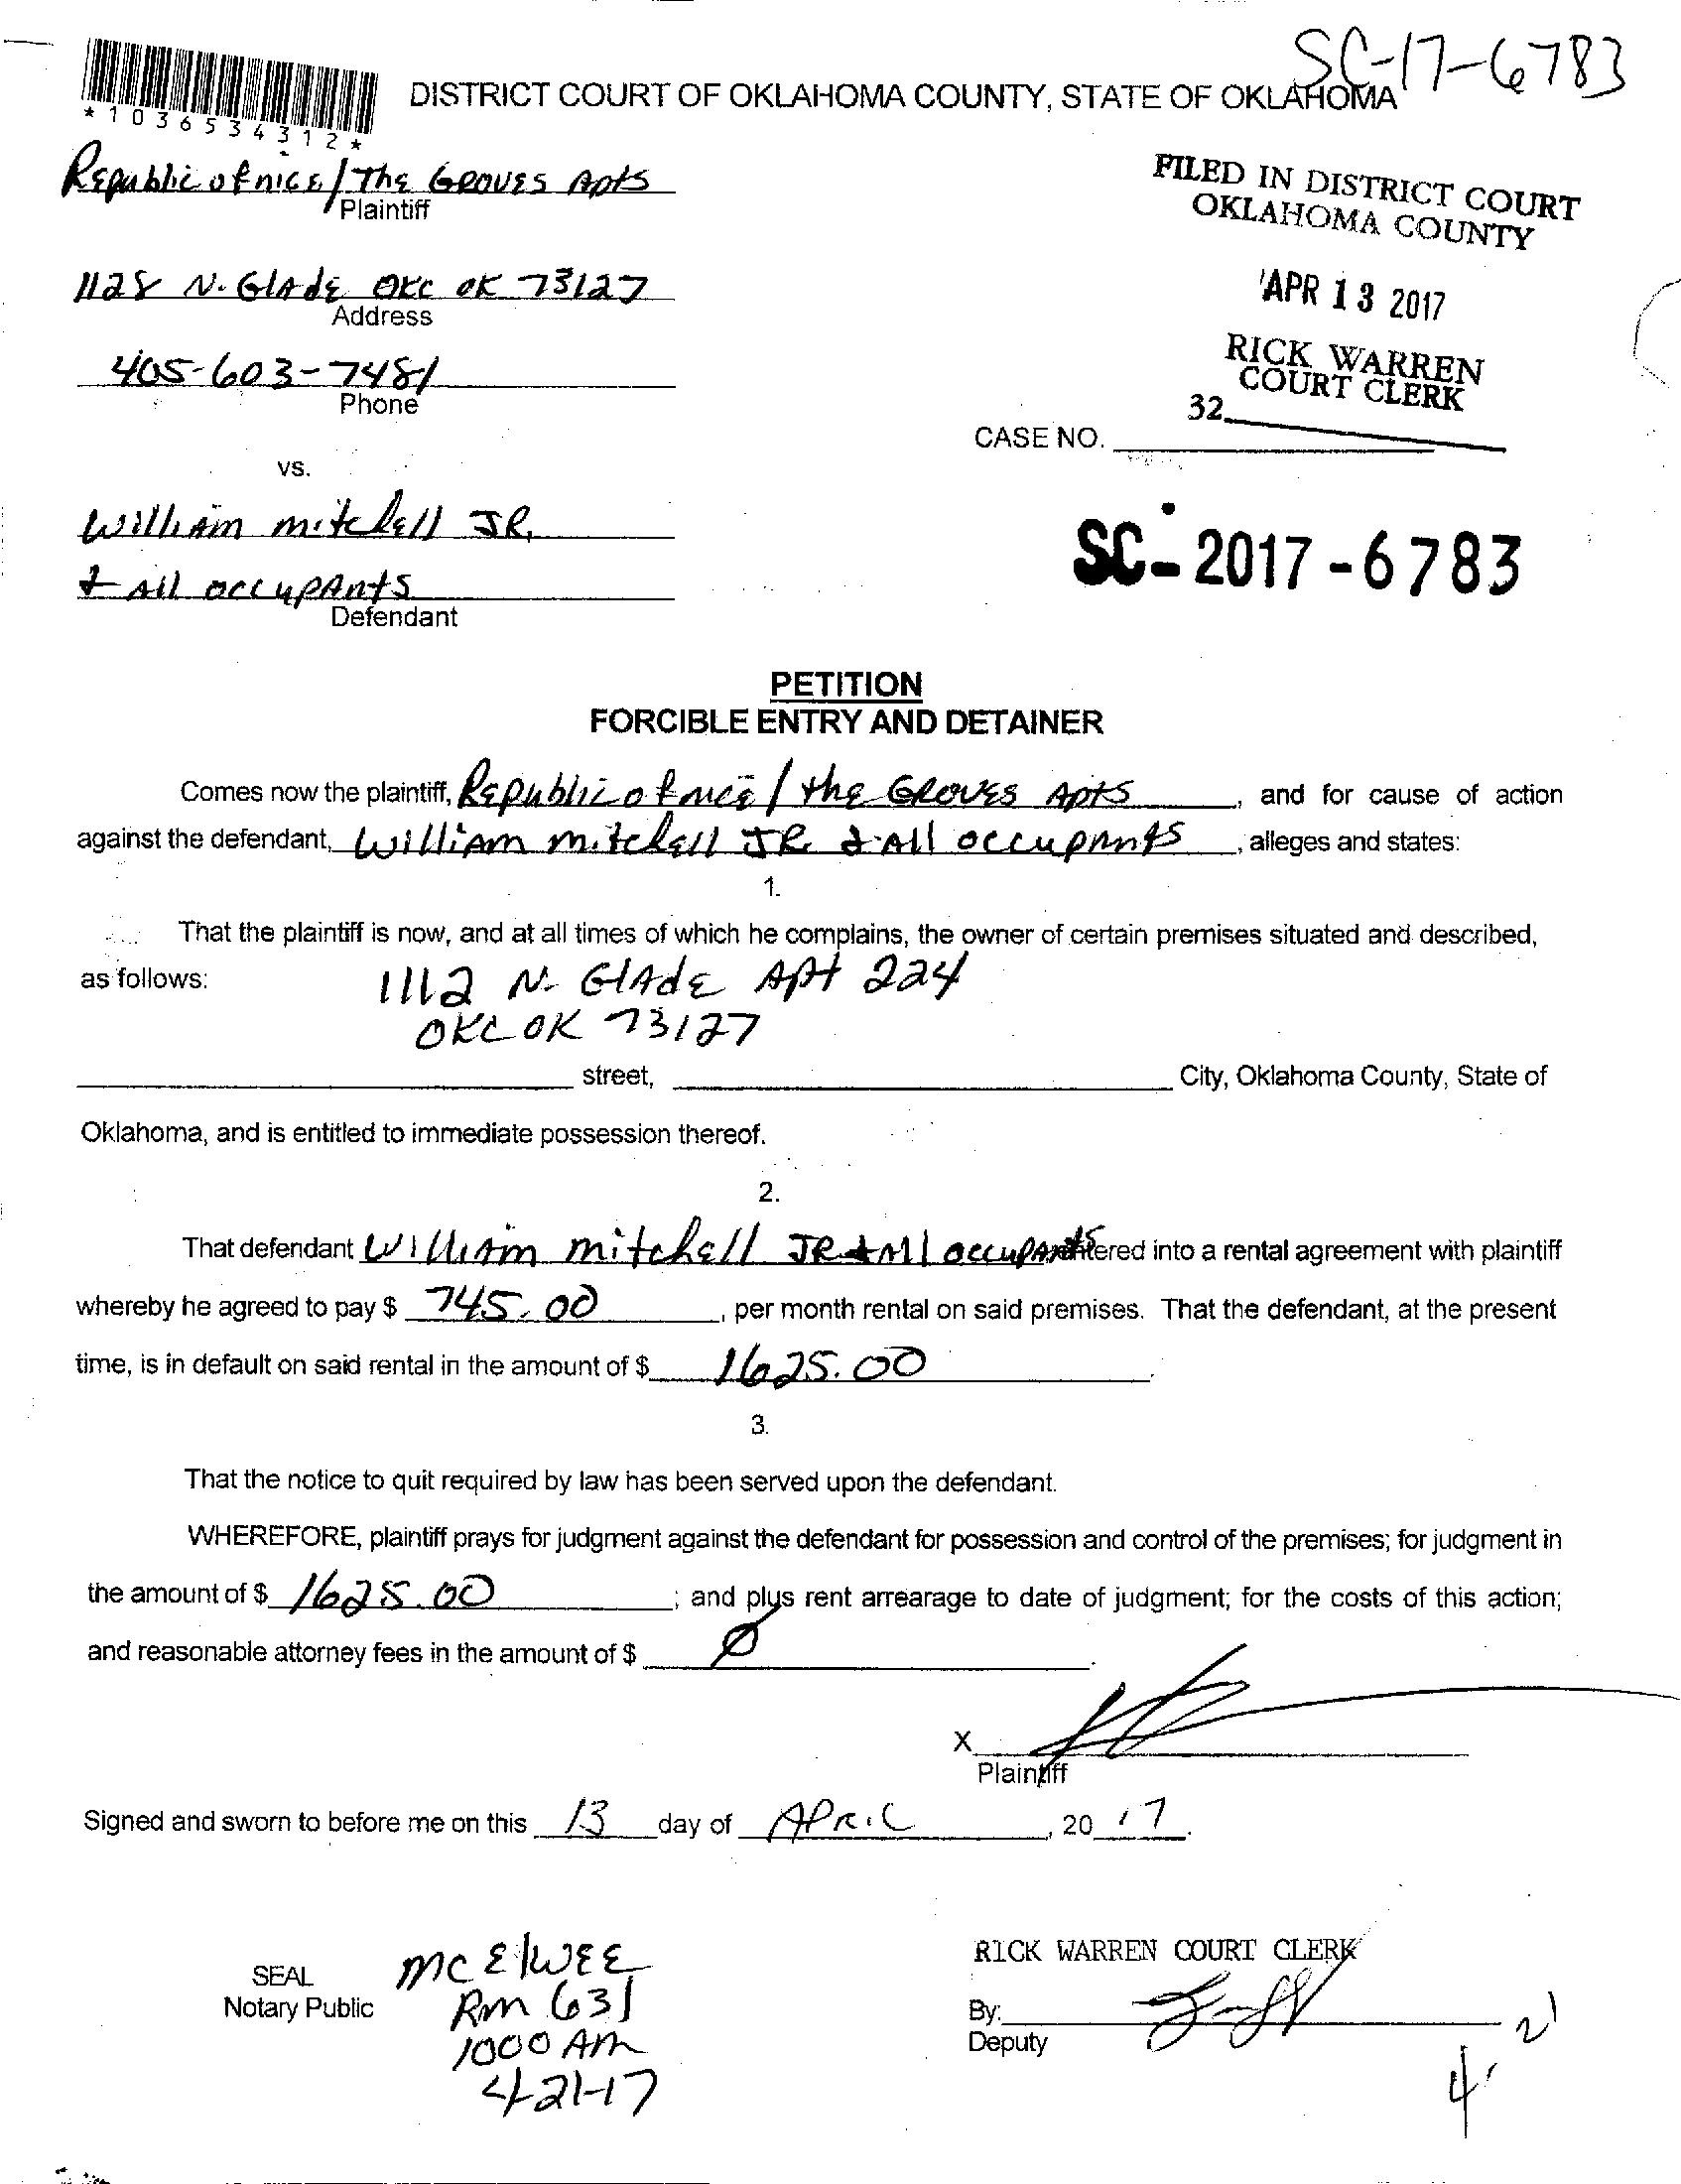 SC-17-6783
DISTRICT COURT OF OKLAHOMA COUNTY, STATE OF OKLAHOMA
*1036534312*
Republic of nice / The Groves Apts
Plaintiff
FILED IN DISTRICT COURT
OKLAHOMA COUNTY
1128 N. Glade OKC OK 73127
Address
APR 13 2017
405-603-7481
Phone
RICK WARREN
COURT CLERK
32
CASE NO.
vs.
William mitchell JR,
& All occupants
Defendant
SC-2017-6783
PETITION
FORCIBLE ENTRY AND DETAINER
Comes now the plaintiff, Republic of nice / the Groves Apts, and for cause of action
against the defendant, William mitchell JR & All occupants, alleges and states:
1.
That the plaintiff is now, and at all times of which he complains, the owner of certain premises situated and described,
as follows: 1112 N. Glade Apt 224
OKC OK 73127
street, City, Oklahoma County, State of
Oklahoma, and is entitled to immediate possession thereof.
2.
That defendant William mitchell JR & All occupants entered into a rental agreement with plaintiff
whereby he agreed to pay $ 745.00, per month rental on said premises. That the defendant, at the present
time, is in default on said rental in the amount of $ 1625.00.
3.
That the notice to quit required by law has been served upon the defendant.
WHEREFORE, plaintiff prays for judgment against the defendant for possession and control of the premises; for judgment in
the amount of $ 1625.00; and plus rent arrearage to date of judgment; for the costs of this action;
and reasonable attorney fees in the amount of $ Ø.
X
Plaintiff
Signed and sworn to before me on this 13 day of APRIL, 2017.
SEAL
Notary Public
McElwee
Rm 631
1000 AM
4-21-17
RICK WARREN COURT CLERK
By:
Deputy
4 21